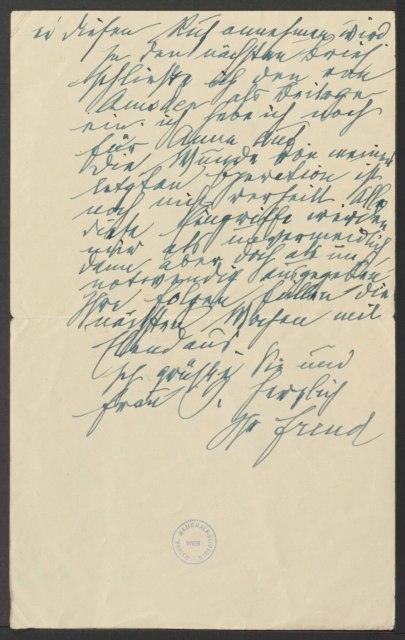 er diesen Ruf annehmen wird
In den nächsten Brief
schließe ich den von
als Beilage
ein. ich habe ich noch
für Anna und
Die Wunde von meiner
letzten Operation ist
noch nicht verheilt. Alle
diese Eingriffe werden
mir als unvermeidlich
dann aber doch als un
notwendig ausgegeben
Ihre Folgen füllen die
nächsten Wochen mit
Elend aus.
Ich grüße Sie und
Frau herzlich
Ihr Freud